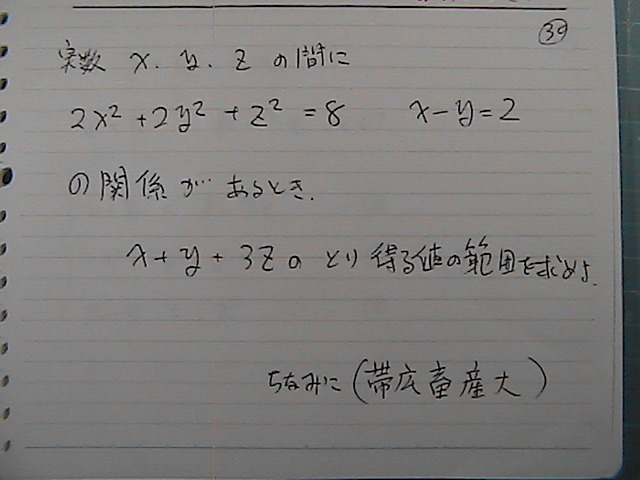 39
実数 x, y, z の間に
2x² + 2y² + z² = 8 x - y = 2
の関係があるとき.
x + y + 3z の とり得る値の範囲を求めよ.
ちなみに (帯広畜産大)